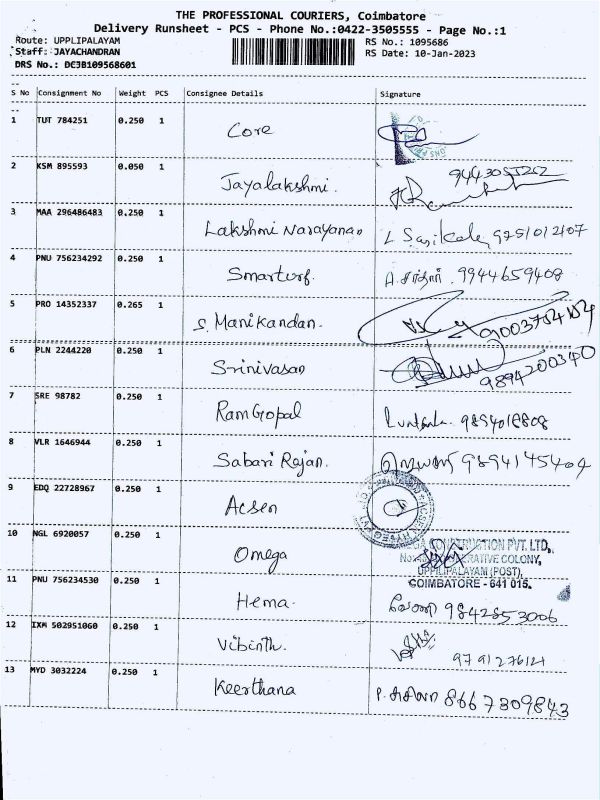 THE PROFESSIONAL COURIERS, Coimbatore
Delivery Runsheet - PCS - Phone No.:0422-3505555 - Page No.:1
Route: UPPLIPALAYAM RS No.: 1095686
Staff: JAYACHANDRAN RS Date: 10-Jan-2023
DRS No.: DCJB109568601
S No Consignment No Weight PCS Consignee Details Signature
1 TUT 784251 0.250 1 Core
2 KSM 895593 0.050 1 Jayalakshmi. 9443055252
3 MAA 296486483 0.250 1 Lakshmi Narayanan L Sasikala, 9751012107
4 PNU 756234292 0.250 1 Smarturf. 9944659408
5 PRO 14352337 0.265 1 S. Manikandan.
6 PLN 2244220 0.250 1 Srinivasan 9894200340
7 SRE 98782 0.250 1 RamGopal
8 VLR 1646944 0.250 1 Sabari Rajan.
9 EDQ 22728967 0.250 1 Acsen
10 NGL 6920057 0.250 1 Omega CONSTRUCTION PVT. LTD,
COLONY,
UPPILIPALAYAM (POST),
COIMBATORE - 641 015.
11 PNU 756234530 0.250 1 Hema. 9842853006
12 IXM 502951060 0.250 1 Vibinth.
13 MYD 3032224 0.250 1 Keerthana 8667309843